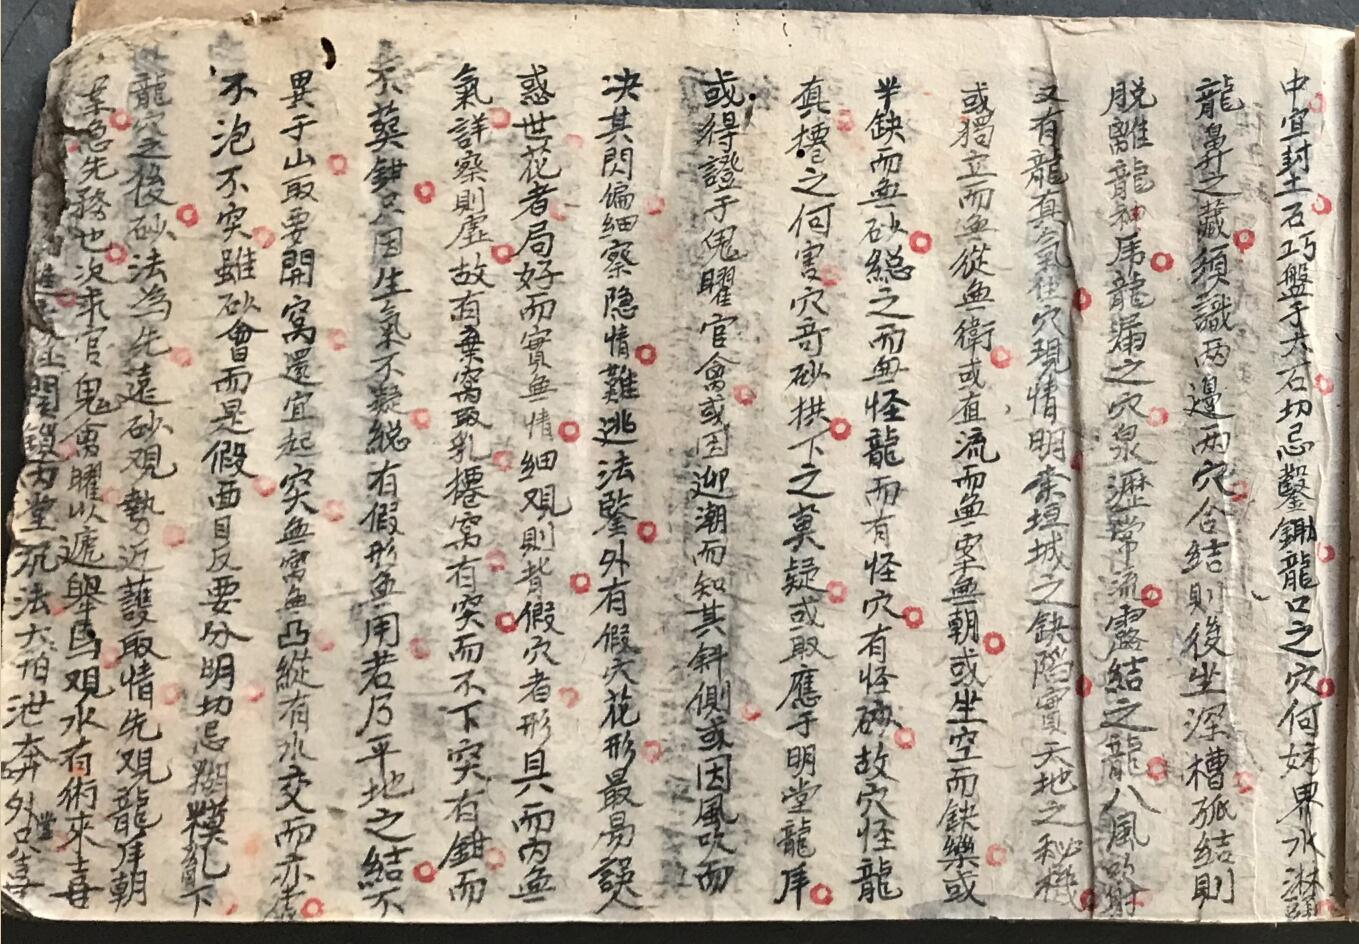 中宜封土石巧盤于大石切忌鑿鋤龍口之穴何妨界水淋頭
龍鼻之藏須識两邊两穴合結則後坐深槽孤结則
脱離龍神虎龍漏之穴泉瀝常流露結之龍八風吹射
又有龍真氣住穴現情明棄垣城之缺陷實天地之秘機
或獨立而無從無衛或直流而無案無朝或坐空而缺樂或
半缺而無砂総之而無怪龍而有怪穴有怪砂故穴怪龍
真捲之何害穴奇砂拱下之莫疑或取應于明堂龍虎
或得證于鬼曜官禽或因迎潮而知其斜側或因風吹而
决其閃偏細察隐情難逃法鑒外有假穴花形最易誤人
惑世花者局好而實無情細观則背假穴者形具而内無
氣詳察則虚故有棄窩取乳捲窝有突而不下突有鉗而
不葬鉗只因生氣不凝総有假形無用若乃平地之結不
異于山取要開窩還宜起突無窝無凸縱有水交而亦虚
不泡不突雖砂會而是假面目反要分明切忌糊糢乱下
龍穴之後砂法為先遠砂观勢近護取情先观龍虎朝
案急先務也次求官鬼禽曜以遞舉焉观水有術來喜
閉鎖内堂玩法大怕泄奔外堂只喜